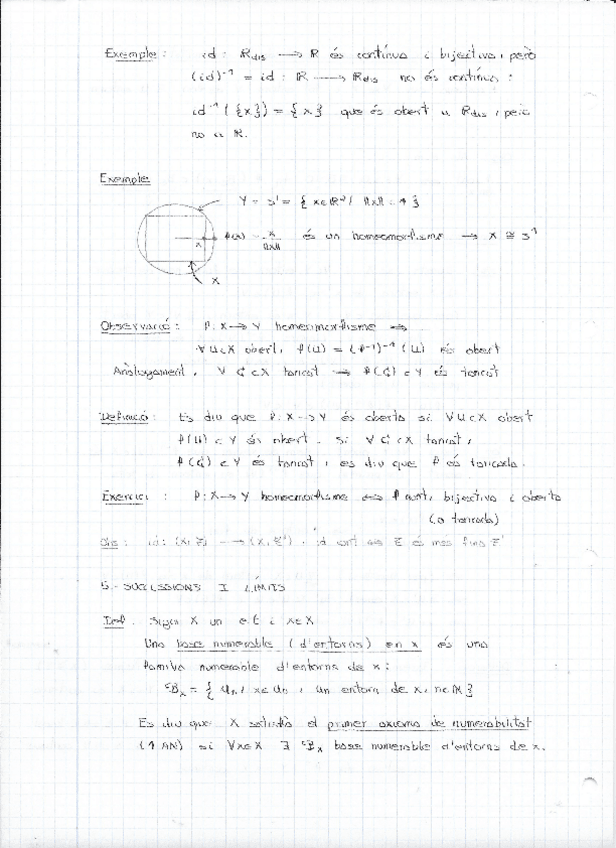 Exemple: id: ℝdis → ℝ és contínua i bijectiva, però
(id)⁻¹ = id: ℝ → ℝdis no és contínua:
id⁻¹({x}) = {x} que és obert a ℝdis, però
no a ℝ.
Exemple
Y = S¹ = {x∈ℝ² / ||x|| = 1}
f(x) = x/||x|| és un homeomorfisme → X ≅ S¹
x
X
Observació: f: X → Y homeomorfisme ⇒
∀ U⊂X obert, f(U) = (f⁻¹)⁻¹(U) és obert
Anàlogament, ∀ C⊂X tancat → f(C)⊂Y és tancat
Definició: Es diu que f: X → Y és oberta si ∀ U⊂X obert
f(U)⊂Y és obert. Si ∀ C⊂X tancat,
f(C)⊂Y és tancat, es diu que f és tancada.
Exercici: f: X → Y homeomorfisme ⇔ f cont, bijectiva i oberta
(o tancada)
Obs: id: (X, τ) → (X, τ'), id cont ⇔ τ és més fina τ'
5.- SUCCESSIONS I LÍMITS
Def. Sigui X un e.t. i x∈X
Una base numerable (d'entorns) en x és una
família numerable d'entorns de x:
ℬx = {Un / x∈Un, Un entorn de x, n∈ℕ}
Es diu que X satisfà el primer axioma de numerabilitat
(1AN) si ∀x∈X ∃ ℬx base numerable d'entorns de x.